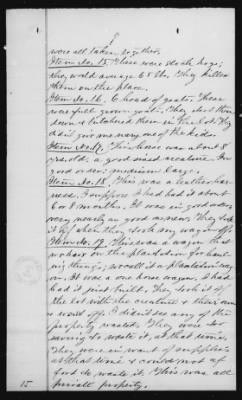 were all taken together.
Item No. 15. These were stock hogs;
they would average 65 lbs. They killed
them on the place.
Item No. 16. 6 head of goats. These
were full grown goats. They shot them
down & butchered them in the lot. They
didn't give me many one of the kids.
Item No. 17. This horse was about 8
yrs. old; a good sized creature. In
good order; medium large.
Item No. 18. This was a leather har-
ness. I suppose I had had it about
6 or 8 months. It was in good order,
very nearly as good as new; they took
it off when they took my wagon off.
Item No. 19. This was a wagon that
we have on the plantation for haul-
ing things; we call it a plantation wag-
on. It was a one horse wagon; I had
had it just built. They took it off
the lot with the creature & their own
& went off. I didn't see any of the
property wasted. They were too
saving to waste it, at that time.
They were in want of supplies
at that time & could not af-
ford to waste it. This was all
private property.
15